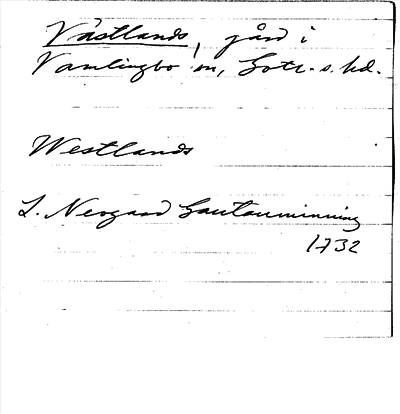 Västlands, gård i
Vamlingbo sn, Gotl. s. hd.
Westlands
L. Neogaard Gautauminning
1732